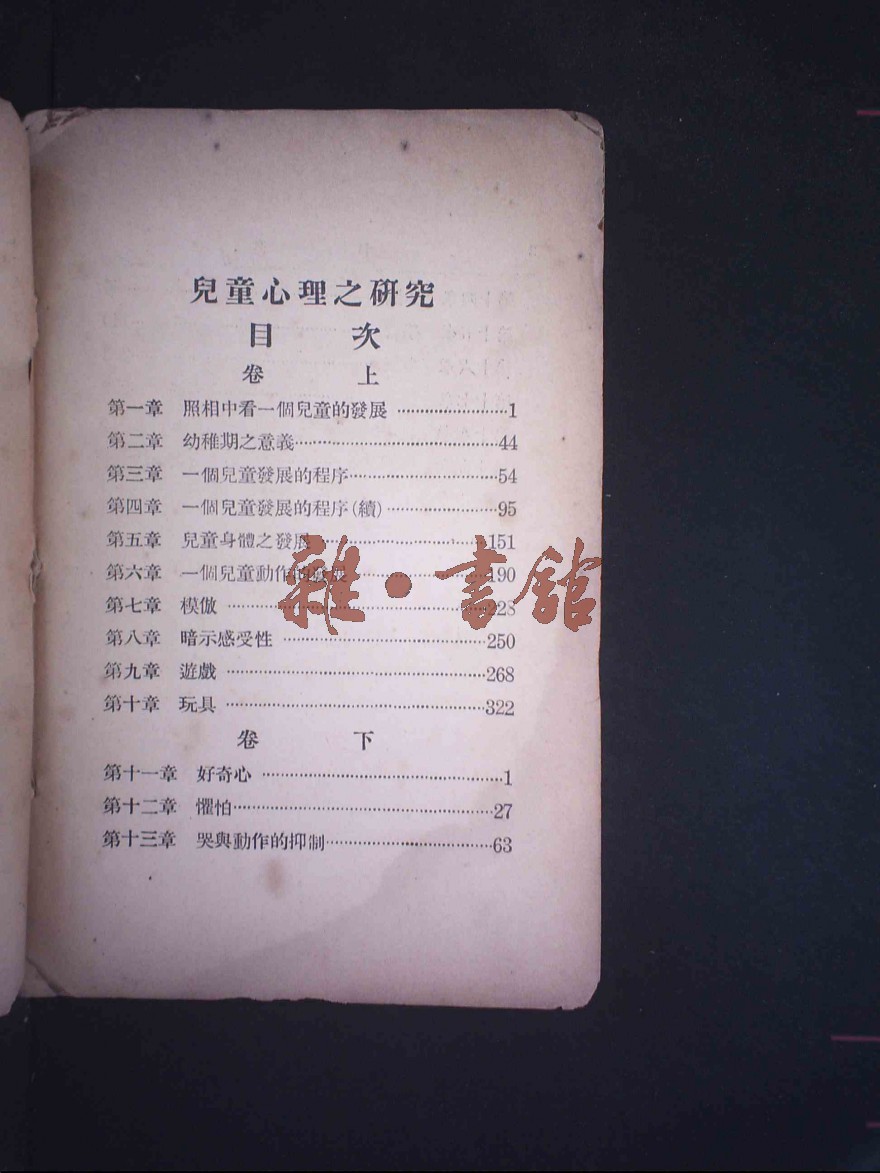 兒童心理之研究
目 次
卷 上
第一章 照相中看一個兒童的發展 ……………… 1
第二章 幼稚期之意義 ……………… 44
第三章 一個兒童發展的程序 ……………… 54
第四章 一個兒童發展的程序(續) ……………… 95
第五章 兒童身體之發展 ……………… 151
第六章 一個兒童動作的發展 ……………… 190
第七章 模倣 ……………… 228
第八章 暗示感受性 ……………… 250
第九章 遊戲 ……………… 268
第十章 玩具 ……………… 322
卷 下
第十一章 好奇心 ……………… 1
第十二章 懼怕 ……………… 27
第十三章 哭與動作的抑制 ……………… 63
雜·書舘